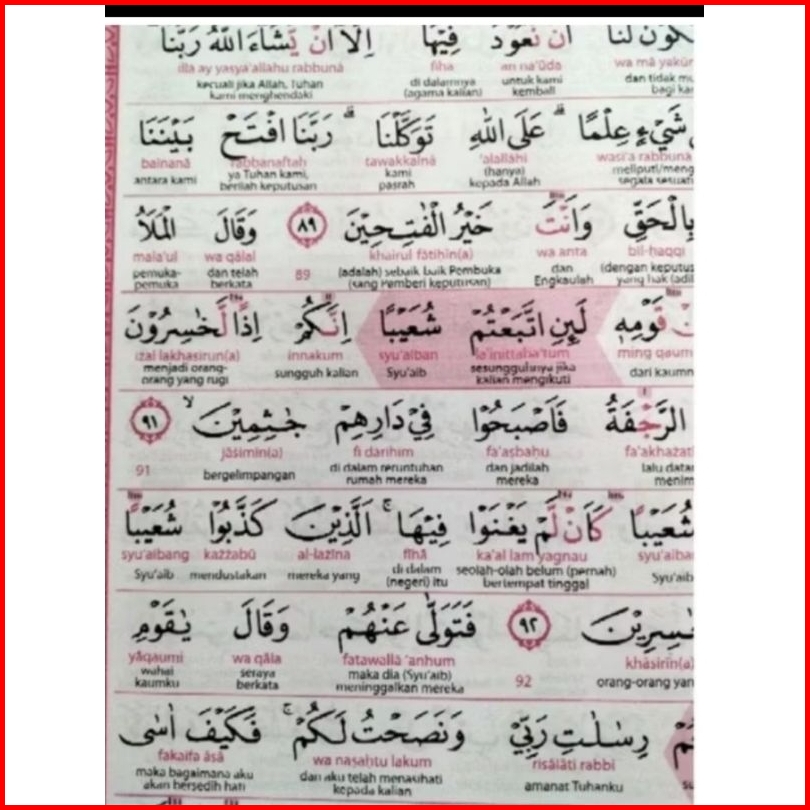 اَنْ نَّعُوْدَ فِيْهَآ اِلَّآ اَنْ يَّشَاۤءَ اللّٰهُ رَبُّنَاۗ
wa mā yakūn an na'ūda fīhā illā ay yasyā'allāhu rabbunā
dan tidak mu bagi ka untuk kami kembali di dalamnya (agama kalian) kecuali jika Allah, Tuhan kami menghendaki
شَيْءٍ عِلْمًاۗ عَلَى اللّٰهِ تَوَكَّلْنَاۗ رَبَّنَا افْتَحْ بَيْنَنَا
wasi'a rabbunā 'alallāhi tawakkalnā rabbanaftaḥ bainanā
meliputi/meng segala sesuatu (hanya) kepada Allah kami pasrah ya Tuhan kami, berilah keputusan antara kami
بِالْحَقِّ وَاَنْتَ خَيْرُ الْفٰتِحِيْنَ ٨٩ وَقَالَ الْمَلَاُ
bil-ḥaqqi wa anta khairul fātiḥīn(a) 89 wa qālal mala'ul
(dengan keputus yang hak (adil dan Engkaulah (adalah) sebaik baik Pembuka (sang Pemberi keputusan) dan telah berkata pemuka-pemuka
قَوْمِهٖ لَىِٕنِ اتَّبَعْتُمْ شُعَيْبًا اِنَّكُمْ اِذًا لَّخٰسِرُوْنَ
ming qaum la'inittaba'tum syu'aiban innakum iżal lakhāsirūn(a)
dari kaumn sesungguhnya jika kalian mengikuti Syu'aib sungguh kalian menjadi orang-orang yang rugi
الرَّجْفَةُ فَاَصْبَحُوْا فِيْ دَارِهِمْ جٰثِمِيْنَۙ ٩١
fa'akhażat fa'aṣbaḥū fī dārihim jāṡimīn(a) 91
lalu data menim dan jadilah mereka di dalam reruntuhan rumah mereka bergelimpangan
شُعَيْبًا كَاَنْ لَّمْ يَغْنَوْا فِيْهَاۚ اَلَّذِيْنَ كَذَّبُوْا شُعَيْبًا
syu'aiba ka'al lam yagnau fīhā al-lażīna każżabū syu'aibang
Syu'aib seolah-olah belum (pernah) bertempat tinggal di dalam (negeri) itu mereka yang mendustakan Syu'aib
ٰسِرِيْنَ ٩٢ فَتَوَلّٰى عَنْهُمْ وَقَالَ يٰقَوْمِ
khāsirīn(a) 92 fatawallā 'anhum wa qāla yāqaumi
orang-orang yan maka dia (Syu'aib) meninggalkan mereka seraya berkata wahai kaumku
رِسٰلٰتِ رَبِّيْ وَنَصَحْتُ لَكُمْۚ فَكَيْفَ اٰسٰى
risālāti rabbī wa naṣaḥtu lakum fakaifa āsā
amanat Tuhanku dan aku telah menasihati kepada kalian maka bagaimana aku akan bersedih hati